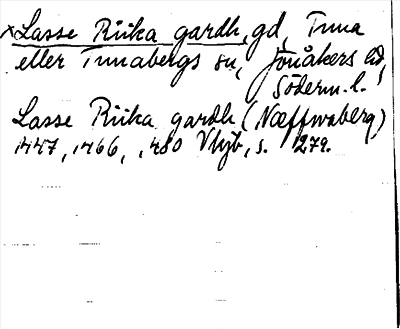 ×Lasse Riika gardh, gd, Tuna
eller Tunabergs sn, Jönåkers hd,
Söderm. l.
Lasse Riika gardh (Næffwaberg)
1447, 1466, 1480 Vhjb, s. 279.